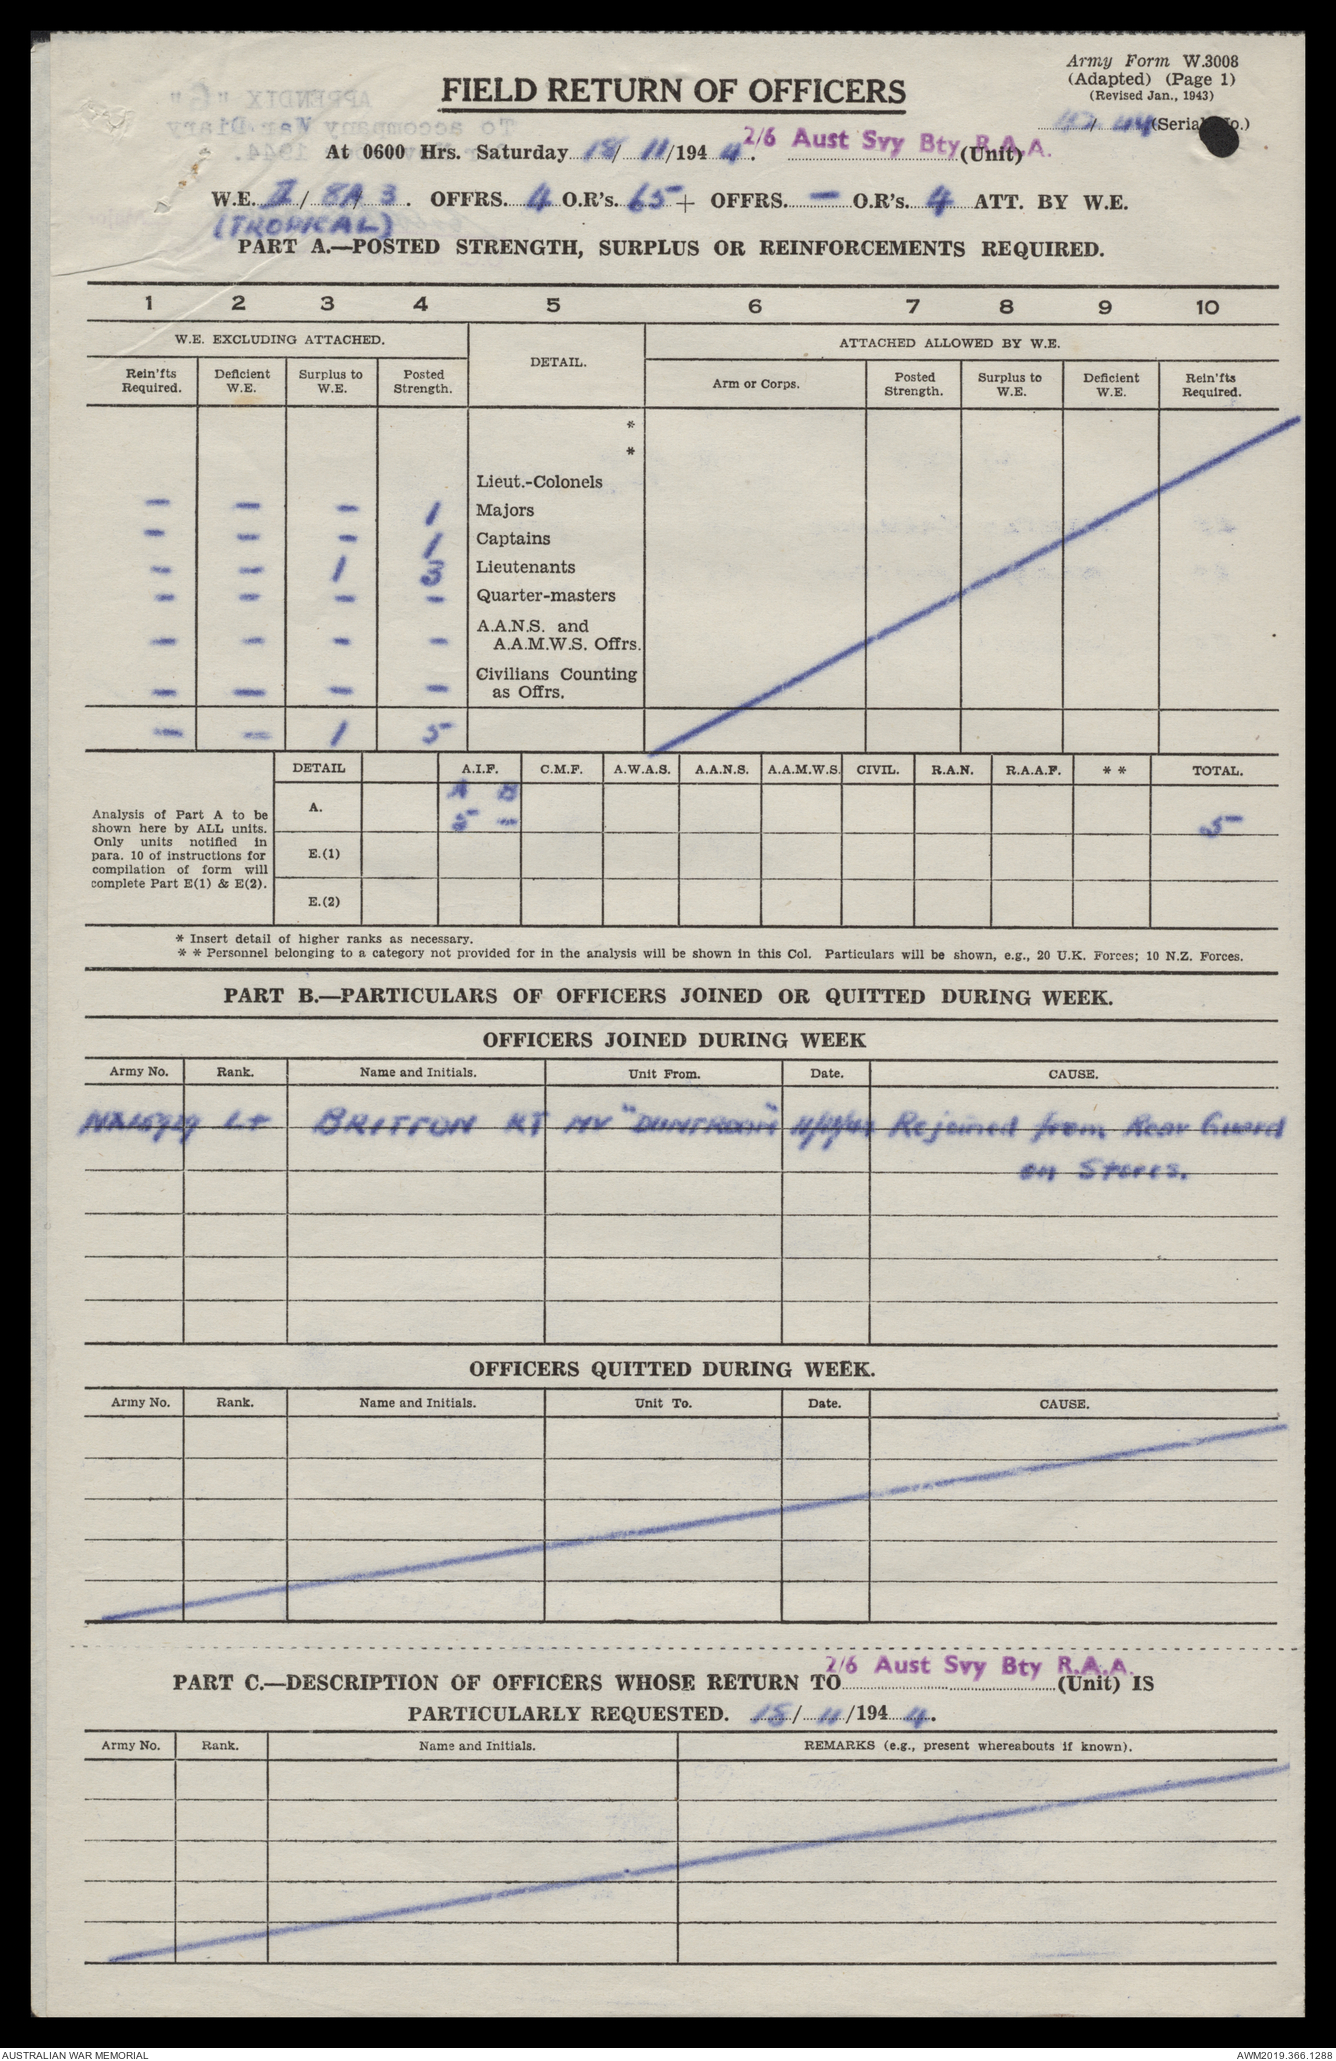 Army Form W.3008
(Adapted) (Page 1)
(Revised Jan., 1943)
FIELD RETURN OF OFFICERS
/ 44 (Serial No.)
At 0600 Hrs. Saturday 18/ 11/194 4. 2/6 Aust Svy Bty R.A.A. (Unit)
W.E. II/ 8A/ 3. OFFRS. 4 O.R's. 65 + OFFRS. — O.R's. 4 ATT. BY W.E.
(TROPICAL)
PART A.—POSTED STRENGTH, SURPLUS OR REINFORCEMENTS REQUIRED.
1 2 3 4 5 6 7 8 9 10
W.E. EXCLUDING ATTACHED. DETAIL. ATTACHED ALLOWED BY W.E.
Rein'fts Required. Deficient W.E. Surplus to W.E. Posted Strength. Arm or Corps. Posted Strength. Surplus to W.E. Deficient W.E. Rein'fts Required.
*
*
Lieut.-Colonels
— — — 1 Majors
— — — 1 Captains
— — 1 3 Lieutenants
— — — — Quarter-masters
A.A.N.S. and
— — — — A.A.M.W.S. Offrs.
Civilians Counting
— — — — as Offrs.
— — 1 5
DETAIL A.I.F. C.M.F. A.W.A.S. A.A.N.S. A.A.M.W.S. CIVIL. R.A.N. R.A.A.F. * * TOTAL.
A B
A. 5 — 5
E.(1)
E.(2)
Analysis of Part A to be
shown here by ALL units.
Only units notified in
para. 10 of instructions for
compilation of form will
complete Part E(1) & E(2).
* Insert detail of higher ranks as necessary.
* * Personnel belonging to a category not provided for in the analysis will be shown in this Col. Particulars will be shown, e.g., 20 U.K. Forces; 10 N.Z. Forces.
PART B.—PARTICULARS OF OFFICERS JOINED OR QUITTED DURING WEEK.
OFFICERS JOINED DURING WEEK
Army No. Rank. Name and Initials. Unit From. Date. CAUSE.
Lt BRITTON KT MV "DUNTROON" Rejoined from Rear Guard
on Stores.
OFFICERS QUITTED DURING WEEK.
Army No. Rank. Name and Initials. Unit To. Date. CAUSE.
PART C.—DESCRIPTION OF OFFICERS WHOSE RETURN TO 2/6 Aust Svy Bty R.A.A. (Unit) IS
PARTICULARLY REQUESTED. 18/ 11/194 4.
Army No. Rank. Name and Initials. REMARKS (e.g., present whereabouts if known).
AUSTRALIAN WAR MEMORIAL AWM2019.366.1288